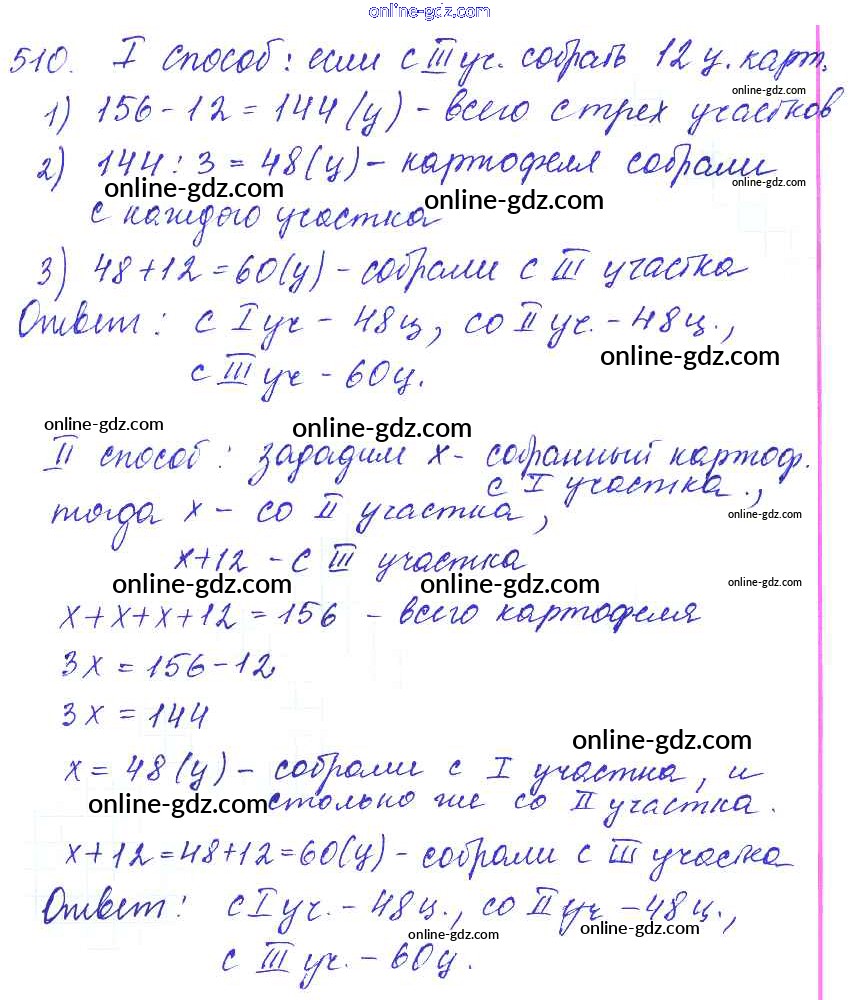 online-gdz.com
510. I способ: если с III уч. собрать 12 ц. карт.
online-gdz.com
1) 156 - 12 = 144 (ц) - всего с трех участков
2) 144 : 3 = 48 (ц) - картофеля собрали
online-gdz.com online-gdz.com online-gdz.com
с каждого участка
online-gdz.com
3) 48 + 12 = 60 (ц) - собрали с III участка
Ответ: с I уч - 48 ц, со II уч. - 48 ц.,
online-gdz.com
с III уч - 60 ц.
online-gdz.com online-gdz.com
II способ: зададим x - собранный картоф.
с I участка.,
тогда x - со II участка,
online-gdz.com
x + 12 - с III участка
online-gdz.com online-gdz.com online-gdz.com
x + x + x + 12 = 156 - всего картофеля
3x = 156 - 12
3x = 144
online-gdz.com
x = 48 (ц) - собрали с I участка, и
online-gdz.com столько же со II участка.
online-gdz.com
x + 12 = 48 + 12 = 60 (ц) - собрали с III участка
Ответ: с I уч. - 48 ц., со II уч - 48 ц.,
online-gdz.com online-gdz.com
с III уч. - 60 ц.